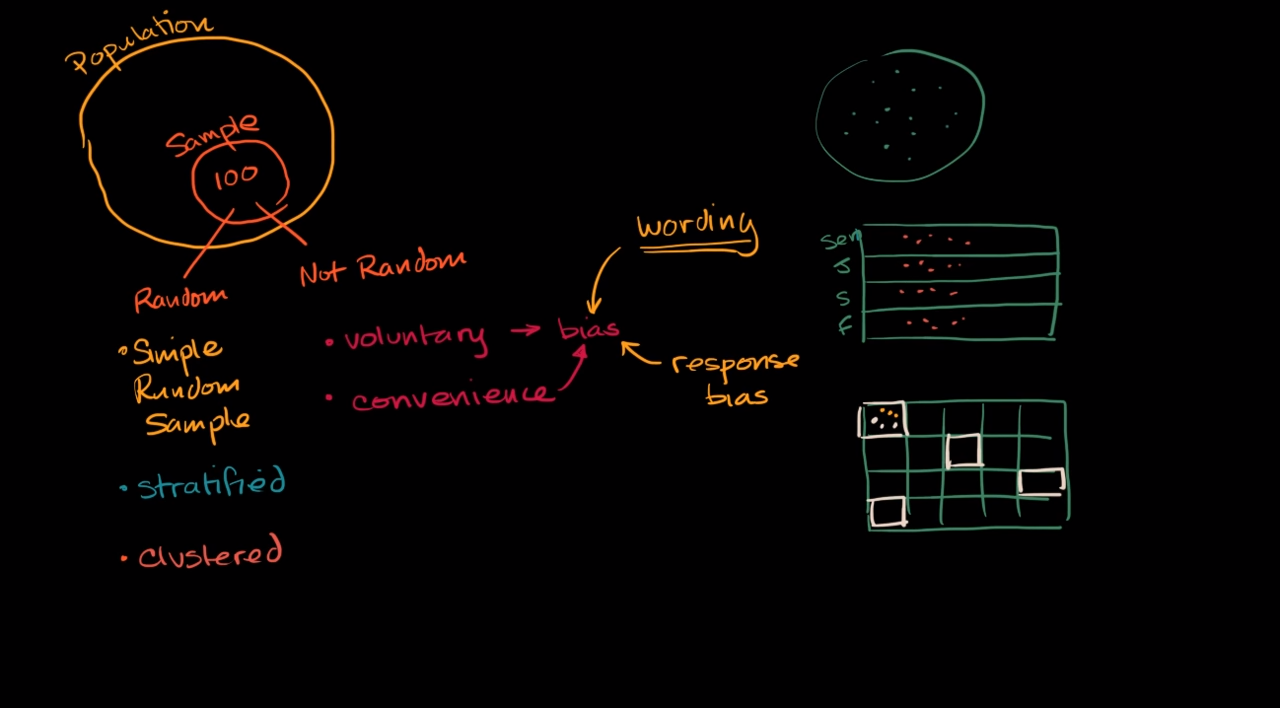 Population
Sample
100
Random
Not Random
• Simple
Random
Sample
• stratified
• clustered
• voluntary → bias
• convenience
wording
response
bias
sen
J
S
f